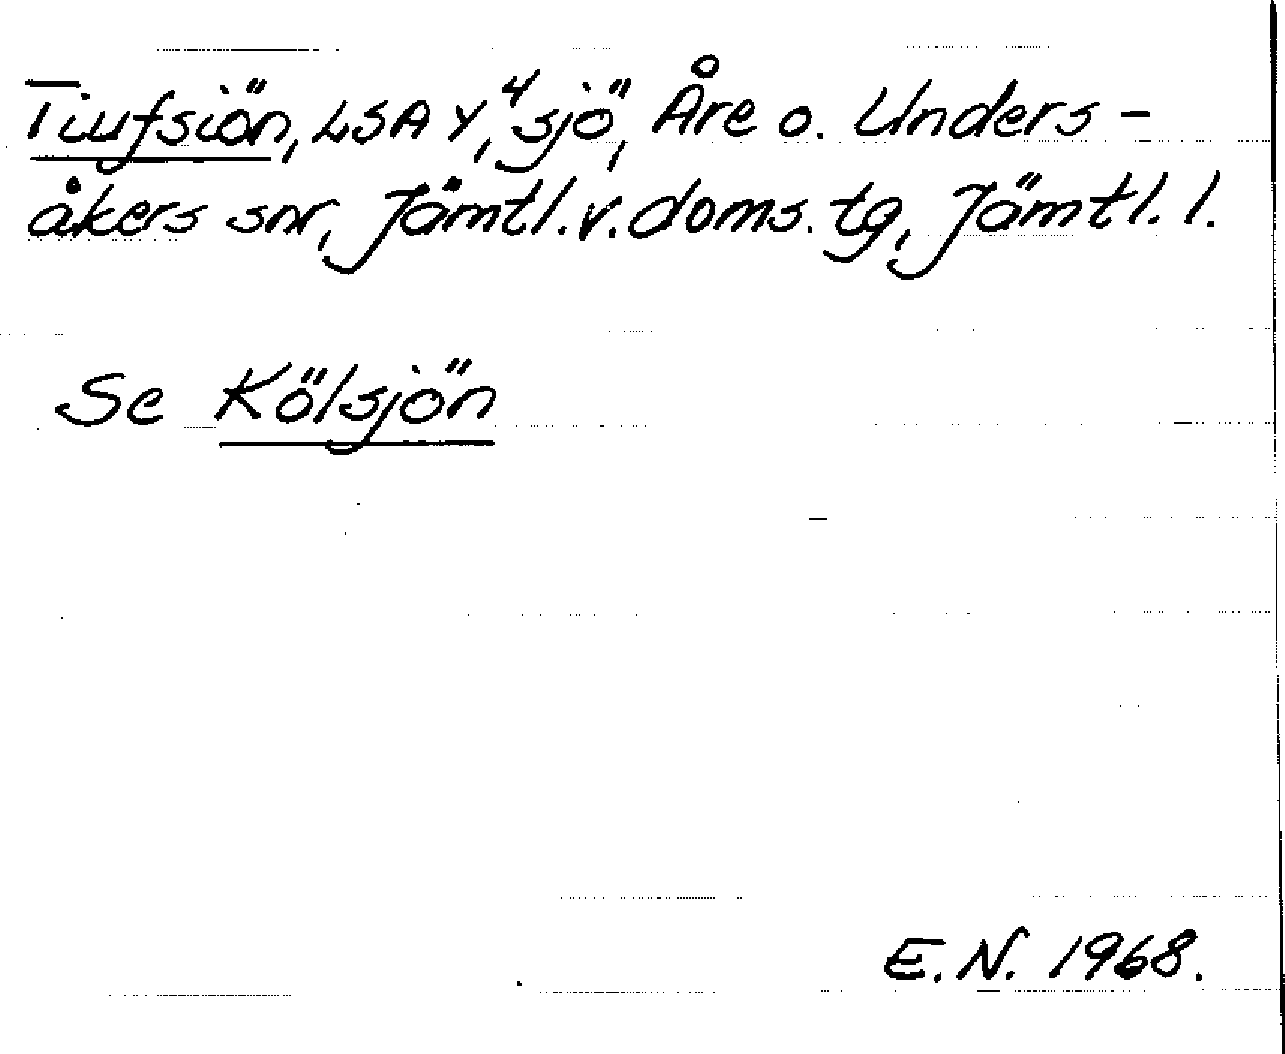 Tiufsiön, LSA Y,⁴ sjö, Åre o. Unders-
åkers snr, Jämtl. v. doms. tg, Jämtl. l.
Se Kölsjön
E. N. 1968.